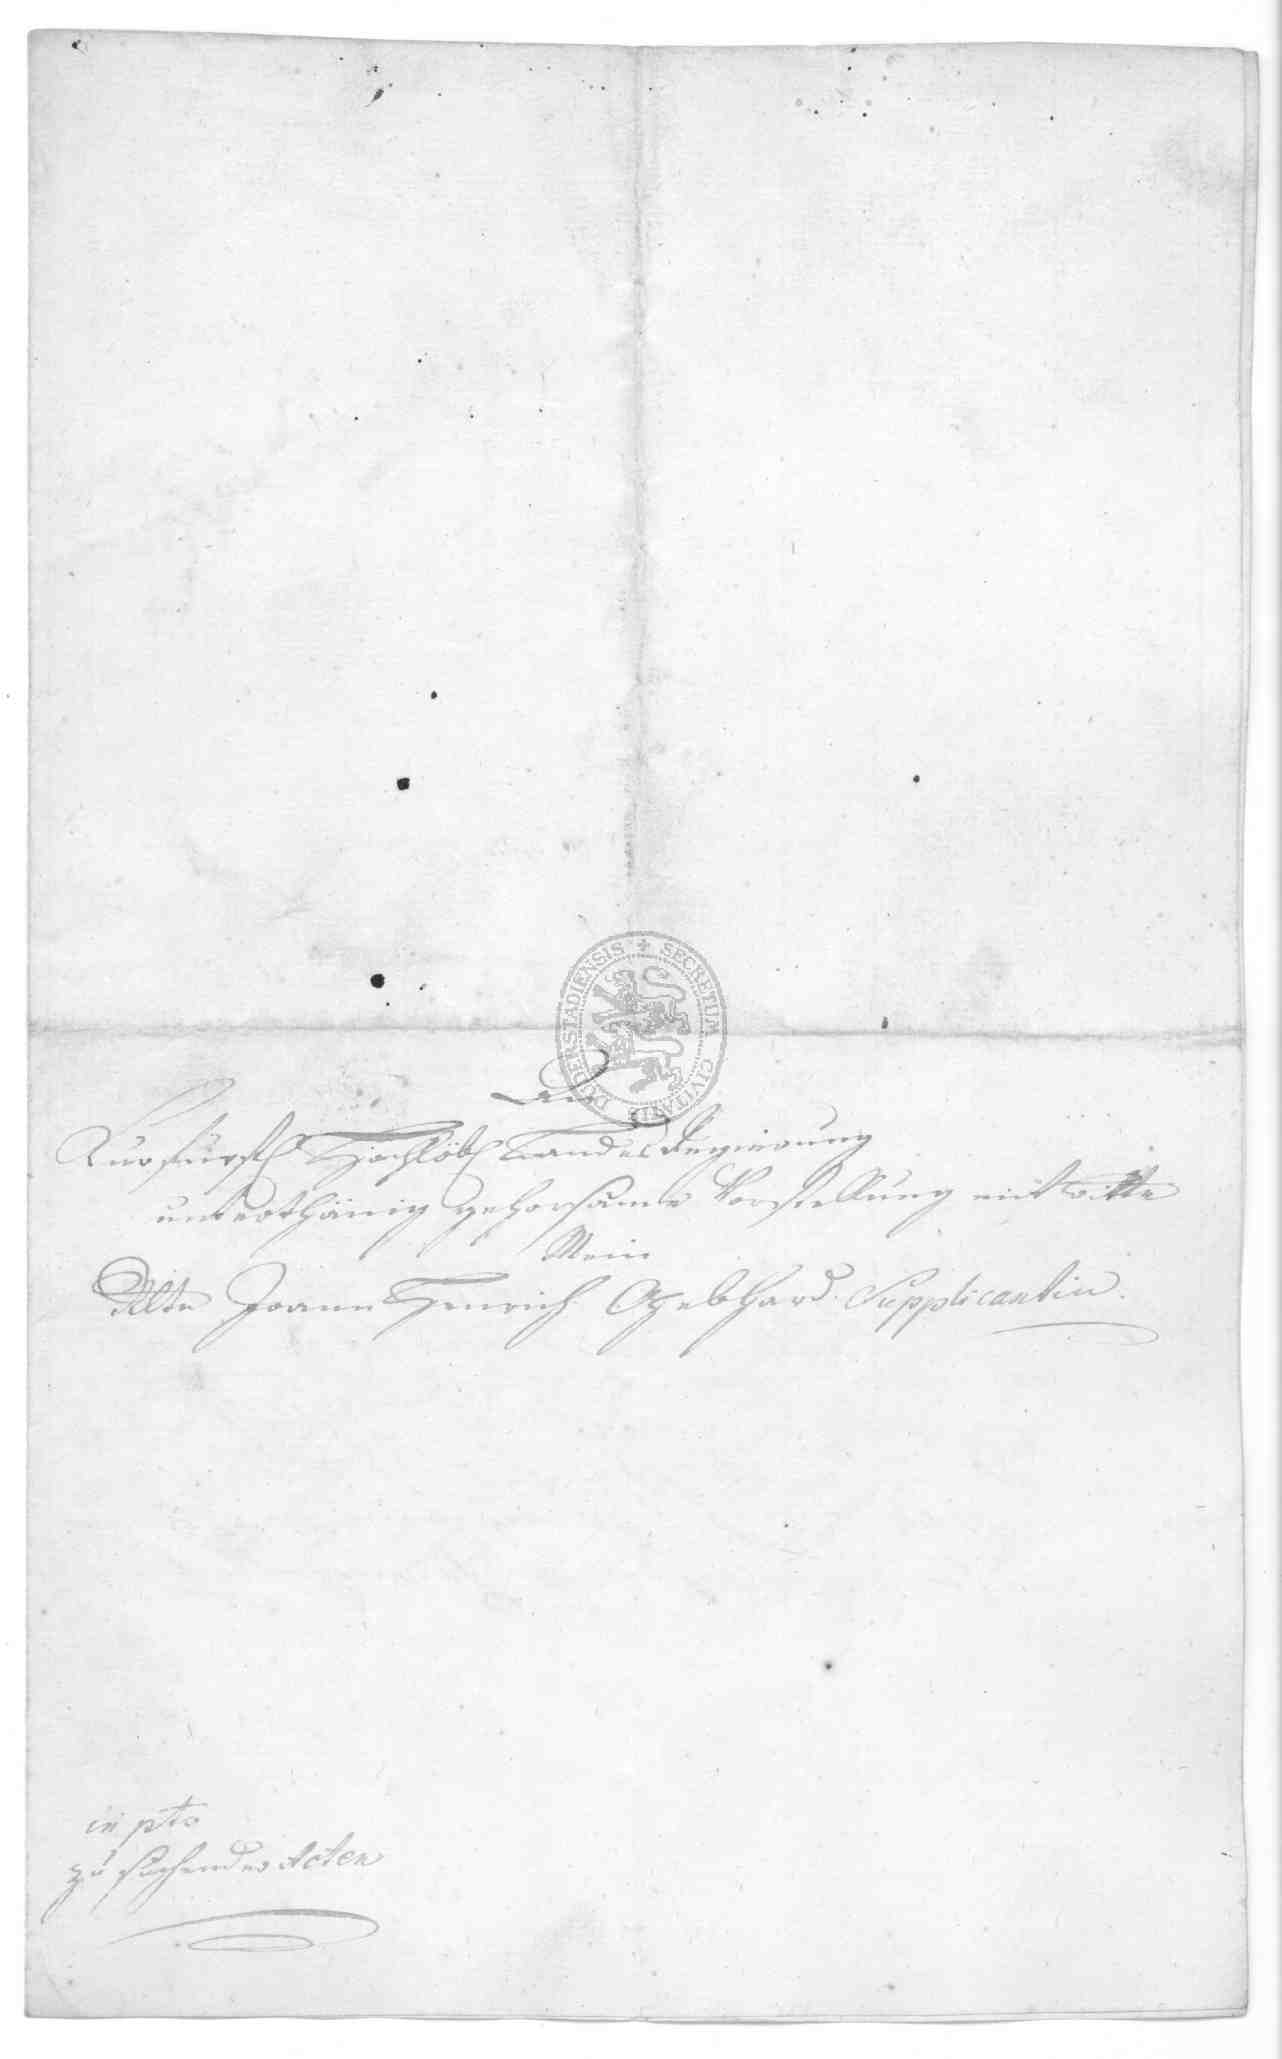 SECRETUM CIVITATIS DUDERSTADIENSIS
An
Kurfürstl Hochlöbl Landes Regierung
unterthänig gehorsame Vorstellung mit Bitte
Mein
Joann Henrich Gebhard Supplicantin.
in pto
zu suchender Acten